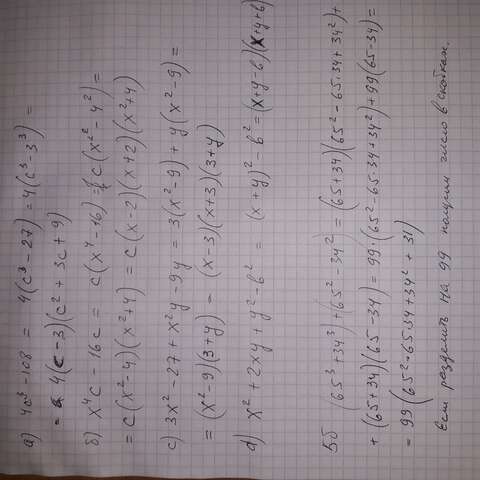 а) 4c³-108 = 4(c³-27) = 4(c³-3³) =
= 4(c-3)(c²+3c+9)
б) x⁴c-16c = c(x⁴-16) = c(x²²-4²) =
= c(x²-4)(x²+4) = c(x-2)(x+2)(x²+4)
c) 3x²-27+x²y-9y = 3(x²-9)+y(x²-9) =
= (x²-9)(3+y) = (x-3)(x+3)(3+y)
d) x²+2xy+y²-b² = (x+y)²-b² = (x+y-b)(x+y+b)
5б (65³+34³)+(65²-34²) = (65+34)(65²-65·34+34²)+
+(65+34)(65-34) = 99·(65²-65·34+34²)+99(65-34) =
= 99(65²-65·34+34²+31)
Если разделить на 99 получим число в скобках.